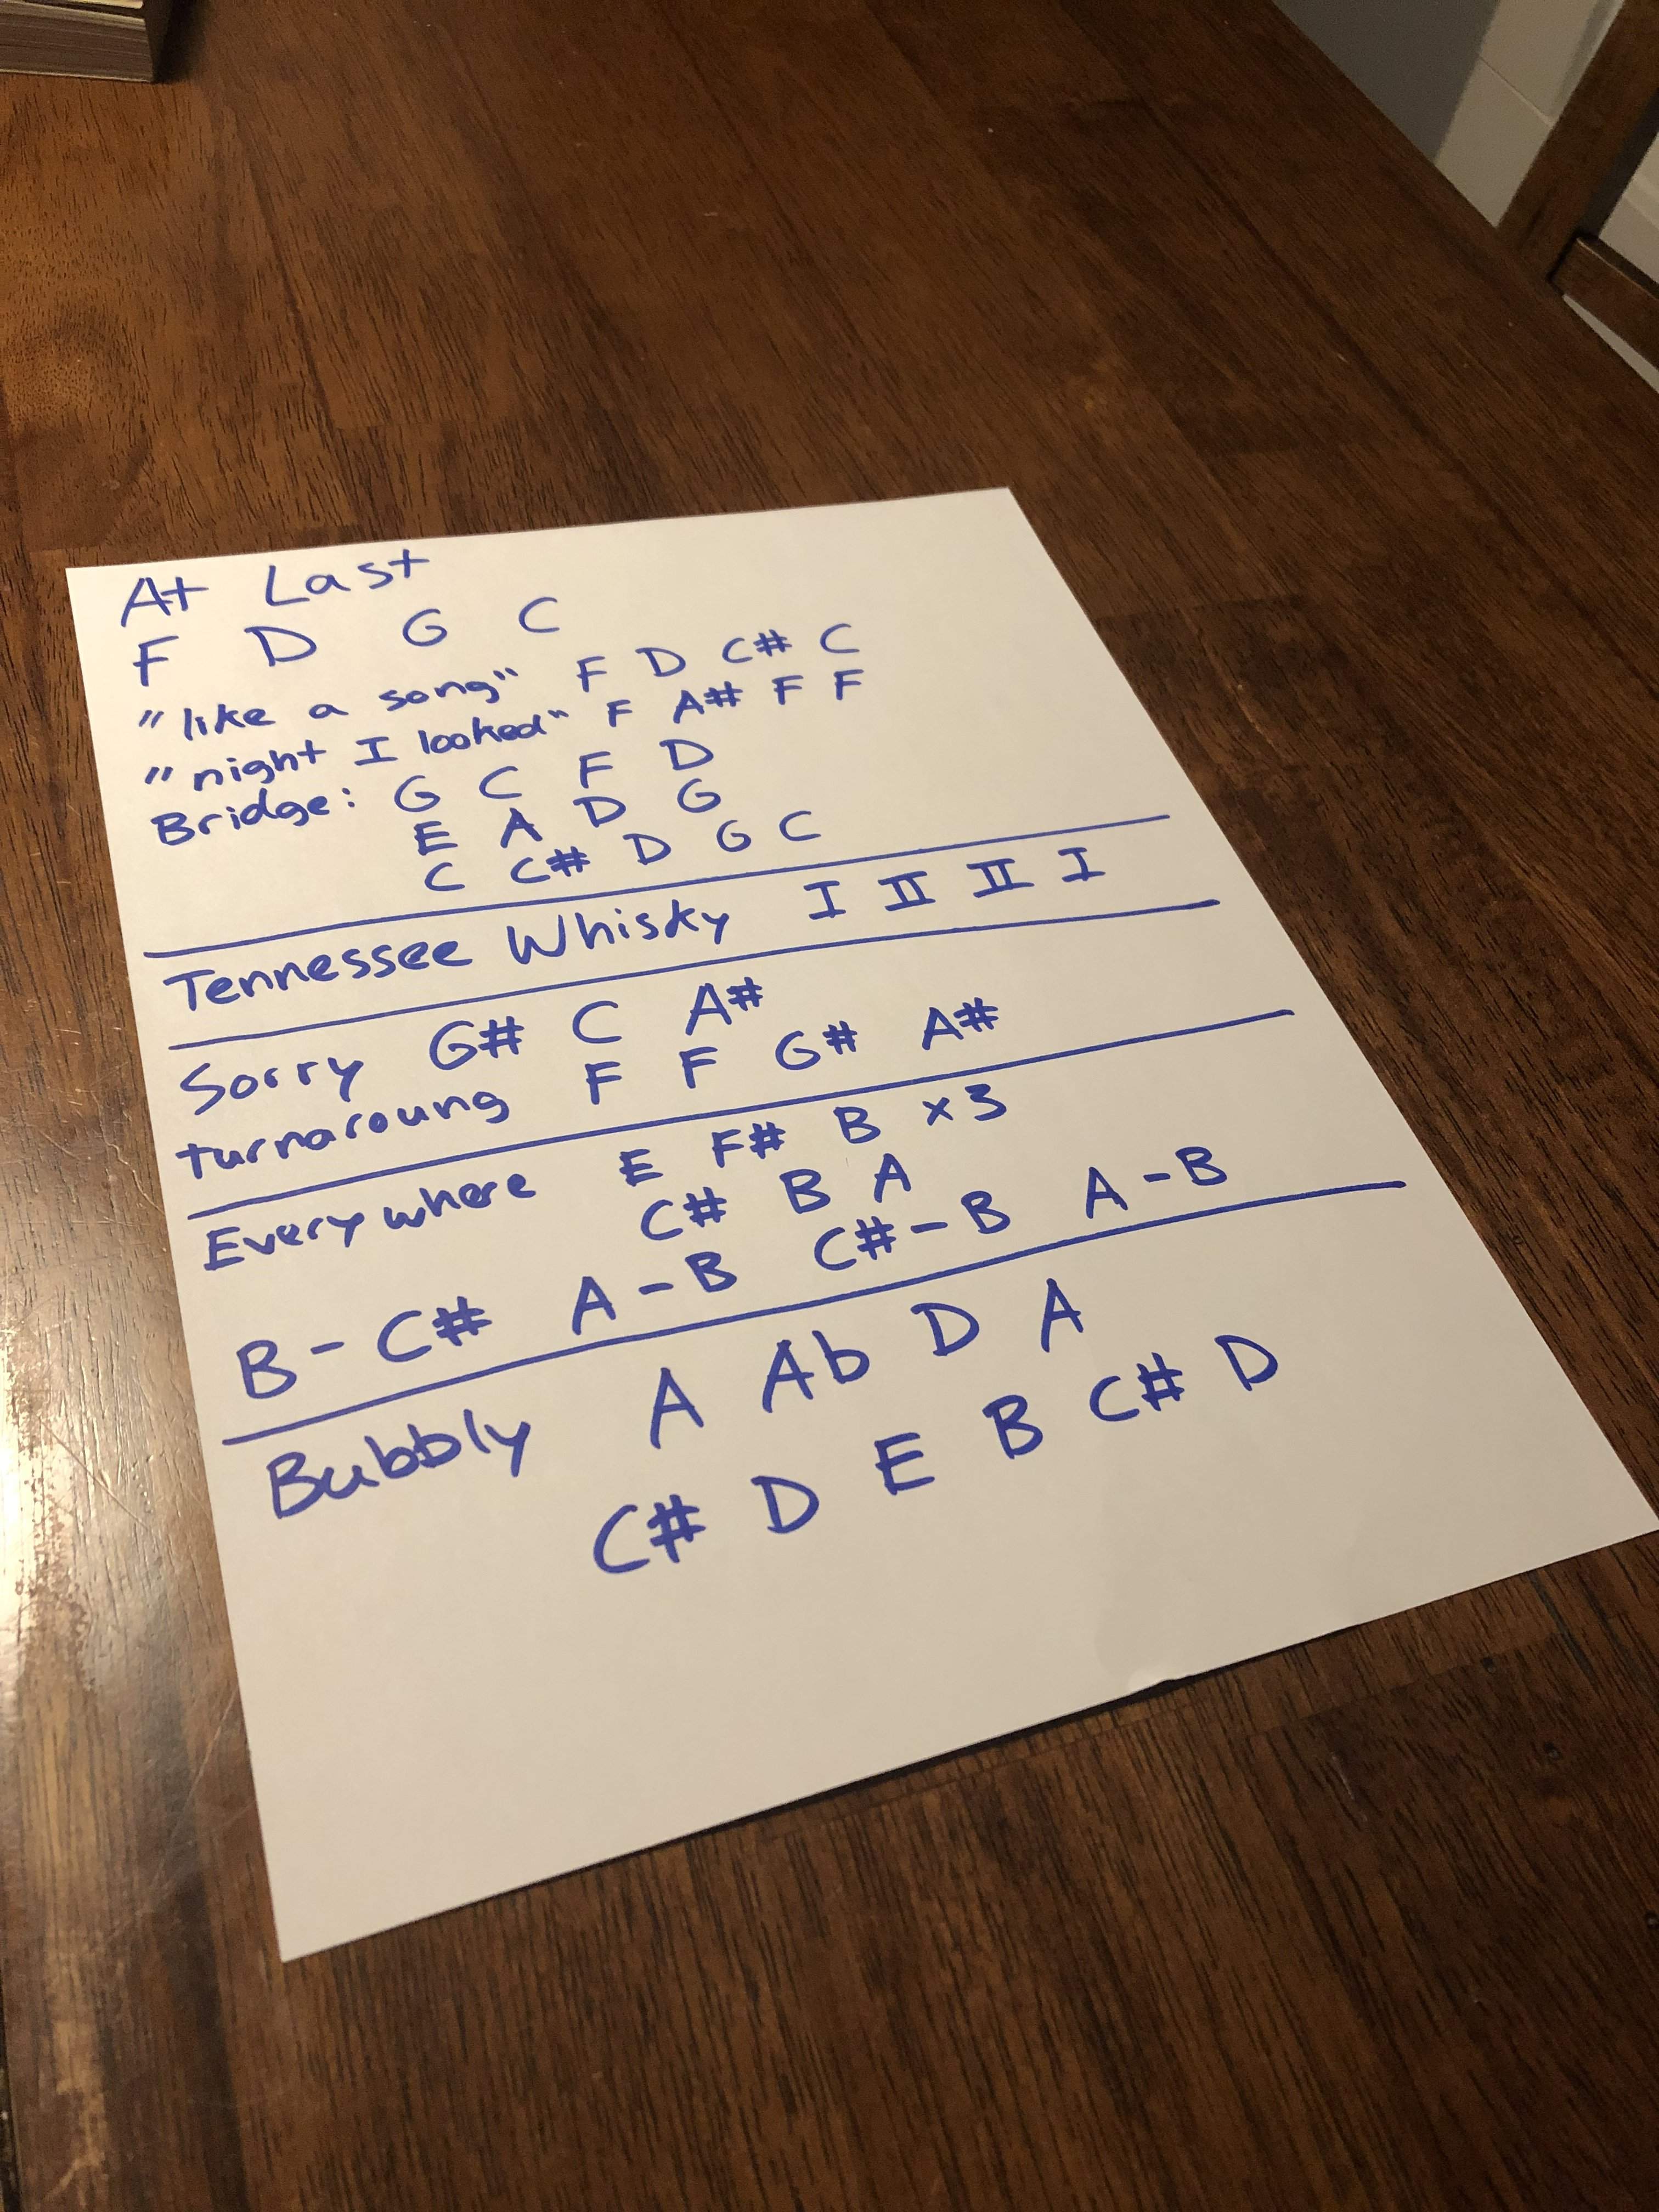 At Last
F D G C
"like a song" F D C# C
"night I looked" F A# F F
Bridge: G C F D
E A D G
C C# D G C
Tennessee Whisky I II II I
Sorry G# C A#
turnaroung F F G# A#
Everywhere E F# B x3
C# B A
B-C# A-B C#-B A-B
Bubbly A Ab D A
C# D E B C# D